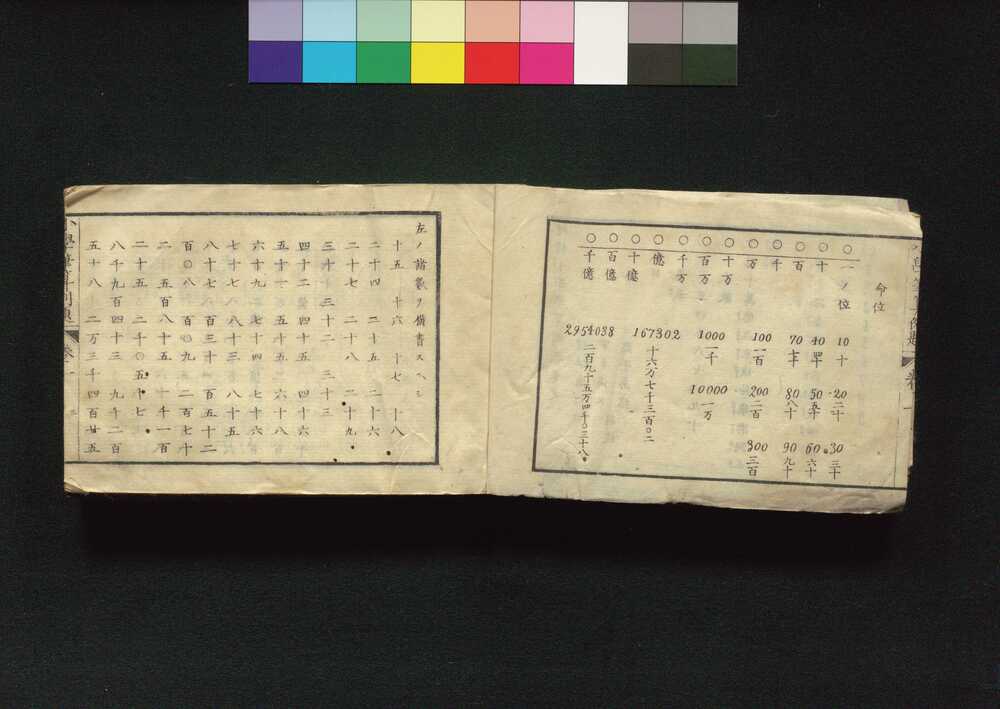 小學筆算例題 卷一
命位
○ 一ノ位 10 十 20 二十 30 三十
○ 十 40 四十 50 五十 60 六十
○ 百 70 七十 80 八十 90 九十
○ 千
○ 万 100 一百 200 二百 300 三百
○ 十万
○ 百万 1000 一千 10000 一万
○ 千万
○ 億 167302 十六万七千三百〇二
○ 十億
○ 百億
○ 千億 2954038 二百九十五万四千〇三十八
左ノ諸數ヲ備書スヘシ
十五 十六 十七 十八
二十四 二十五 二十六
二十七 二十八 二十九
三十 三十二 三十三
四十二 四十五 四十六
五十 五十五 六十八
六十九 七十四 七十六
七十七 八十三 八十五
八十七 八百三十一 百五十二
百〇八 百〇九 二百七十
二 五百八十五 千一百
二十五 二千〇五十七
八千九百四十三 九千二百
五十八 二万三千四百廿五
小學筆算例題 卷一